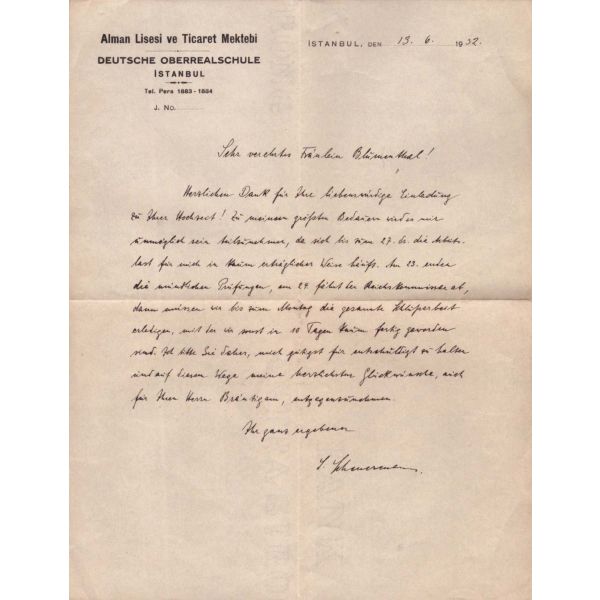 Alman Lisesi ve Ticaret Mektebi
DEUTSCHE OBERREALSCHULE
İSTANBUL
Tel. Pera 1883 - 1884
J. No.
İSTANBUL, DEN 13. 6. 1932.
Sehr verehrtes Fräulein Blumenthal!
Herzlichen Dank für Ihre liebenswürdige Einladung
zu Ihrer Hochzeit! Zu meinem größten Bedauern wird es mir
unmöglich sein teilzunehmen, da sich bis zum 27. ds. die Arbeits-
last für mich in kaum erträglicher Weise häuft. Am 23. enden
die mündlichen Prüfungen, am 24. fährt der Reichskommissar ab,
dann müssen wir bis zum Montag die gesamte Schlußarbeit
erledigen, mit der wir sonst in 10 Tagen kaum fertig geworden
sind. Ich bitte Sie daher, mich gütigst für entschuldigt zu halten
und auf diesem Wege meine herzlichsten Glückwünsche, auch
für Ihren Herrn Bräutigam, entgegenzunehmen.
Ihr ganz ergebener
Scheuermann.